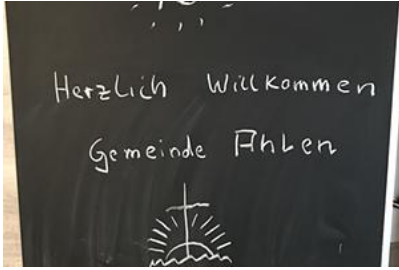 Herzlich Willkommen
Gemeinde Ahlen